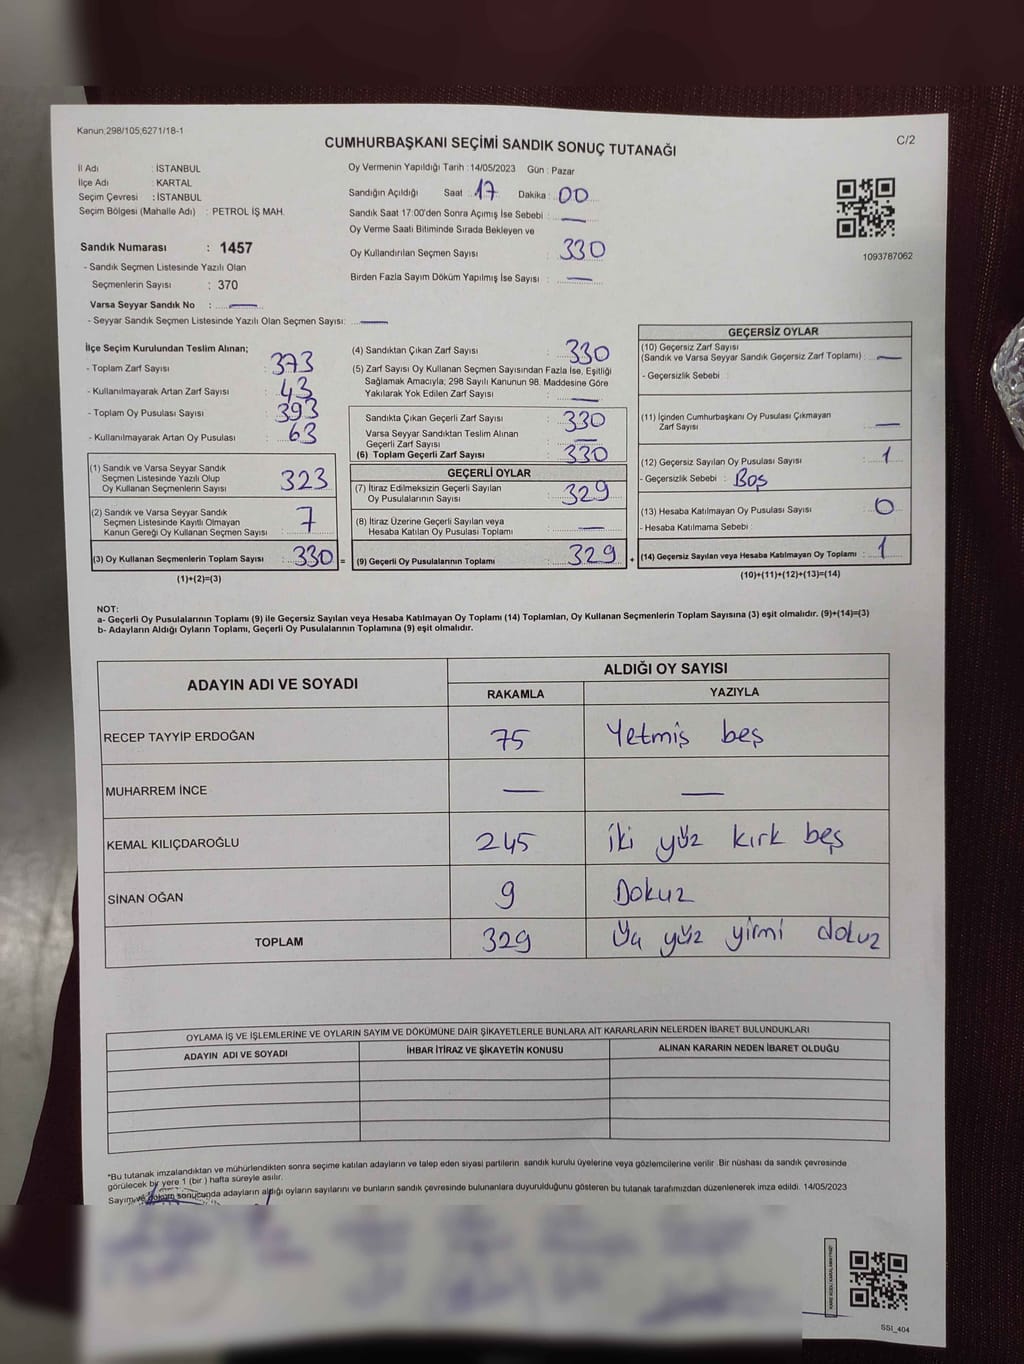 Kanun;298/105;6271/18-1
C/2
CUMHURBAŞKANI SEÇİMİ SANDIK SONUÇ TUTANAĞI
İl Adı : İSTANBUL
İlçe Adı : KARTAL
Seçim Çevresi : İSTANBUL
Seçim Bölgesi (Mahalle Adı) : PETROL İŞ MAH.
Sandık Numarası : 1457
- Sandık Seçmen Listesinde Yazılı Olan
Seçmenlerin Sayısı : 370
Varsa Seyyar Sandık No : —
- Seyyar Sandık Seçmen Listesinde Yazılı Olan Seçmen Sayısı: —
Oy Vermenin Yapıldığı Tarih : 14/05/2023 Gün : Pazar
Sandığın Açıldığı Saat : 17 Dakika : 00
Sandık Saat 17:00'den Sonra Açımış İse Sebebi : —
Oy Verme Saati Bitiminde Sırada Bekleyen ve
Oy Kullandırılan Seçmen Sayısı : 330
Birden Fazla Sayım Döküm Yapılmış İse Sayısı : —
1093787062
İlçe Seçim Kurulundan Teslim Alınan;
- Toplam Zarf Sayısı : 373
- Kullanılmayarak Artan Zarf Sayısı : 43
- Toplam Oy Pusulası Sayısı : 393
- Kullanılmayarak Artan Oy Pusulası : 63
(1) Sandık ve Varsa Seyyar Sandık
Seçmen Listesinde Yazılı Olup
Oy Kullanan Seçmenlerin Sayısı : 323
(2) Sandık ve Varsa Seyyar Sandık
Seçmen Listesinde Kayıtlı Olmayan
Kanun Gereği Oy Kullanan Seçmen Sayısı : 7
(3) Oy Kullanan Seçmenlerin Toplam Sayısı : 330 =
(1)+(2)=(3)
(4) Sandıktan Çıkan Zarf Sayısı : 330
(5) Zarf Sayısı Oy Kullanan Seçmen Sayısından Fazla İse, Eşitliği
Sağlamak Amacıyla; 298 Sayılı Kanunun 98. Maddesine Göre
Yakılarak Yok Edilen Zarf Sayısı : —
Sandıkta Çıkan Geçerli Zarf Sayısı : 330
Varsa Seyyar Sandıktan Teslim Alınan
Geçerli Zarf Sayısı : —
(6) Toplam Geçerli Zarf Sayısı : 330
GEÇERLİ OYLAR
(7) İtiraz Edilmeksizin Geçerli Sayılan
Oy Pusulalarının Sayısı : 329
(8) İtiraz Üzerine Geçerli Sayılan veya
Hesaba Katılan Oy Pusulası Toplamı : —
(9) Geçerli Oy Pusulalarının Toplamı : 329 +
GEÇERSİZ OYLAR
(10) Geçersiz Zarf Sayısı
(Sandık ve Varsa Seyyar Sandık Geçersiz Zarf Toplamı) : —
- Geçersizlik Sebebi :
(11) İçinden Cumhurbaşkanı Oy Pusulası Çıkmayan
Zarf Sayısı : —
(12) Geçersiz Sayılan Oy Pusulası Sayısı : 1
- Geçersizlik Sebebi : Boş
(13) Hesaba Katılmayan Oy Pusulası Sayısı : 0
- Hesaba Katılmama Sebebi :
(14) Geçersiz Sayılan veya Hesaba Katılmayan Oy Toplamı : 1
(10)+(11)+(12)+(13)=(14)
NOT:
a- Geçerli Oy Pusulalarının Toplamı (9) ile Geçersiz Sayılan veya Hesaba Katılmayan Oy Toplamı (14) Toplamları, Oy Kullanan Seçmenlerin Toplam Sayısına (3) eşit olmalıdır. (9)+(14)=(3)
b- Adayların Aldığı Oyların Toplamı, Geçerli Oy Pusulalarının Toplamına (9) eşit olmalıdır.
ADAYIN ADI VE SOYADI
ALDIĞI OY SAYISI
RAKAMLA YAZIYLA
RECEP TAYYİP ERDOĞAN 75 Yetmiş beş
MUHARREM İNCE — —
KEMAL KILIÇDAROĞLU 245 iki yüz kırk beş
SİNAN OĞAN 9 Dokuz
TOPLAM 329 yüz yirmi dokuz
OYLAMA İŞ VE İŞLEMLERİNE VE OYLARIN SAYIM VE DÖKÜMÜNE DAİR ŞİKAYETLERLE BUNLARA AİT KARARLARIN NELERDEN İBARET BULUNDUKLARI
ADAYIN ADI VE SOYADI İHBAR İTİRAZ VE ŞİKAYETİN KONUSU ALINAN KARARIN NEDEN İBARET OLDUĞU
*Bu tutanak imzalandıktan ve mühürlendikten sonra seçime katılan adayların ve talep eden siyasi partilerin sandık kurulu üyelerine veya gözlemcilerine verilir .Bir nüshası da sandık çevresinde
görülecek bir yere 1 (bir ) hafta süreyle asılır.
Sayım ve döküm sonucunda adayların aldığı oyların sayılarını ve bunların sandık çevresinde bulunanlara duyurulduğunu gösteren bu tutanak tarafımızdan düzenlenerek imza edildi. 14/05/2023
SSI_404